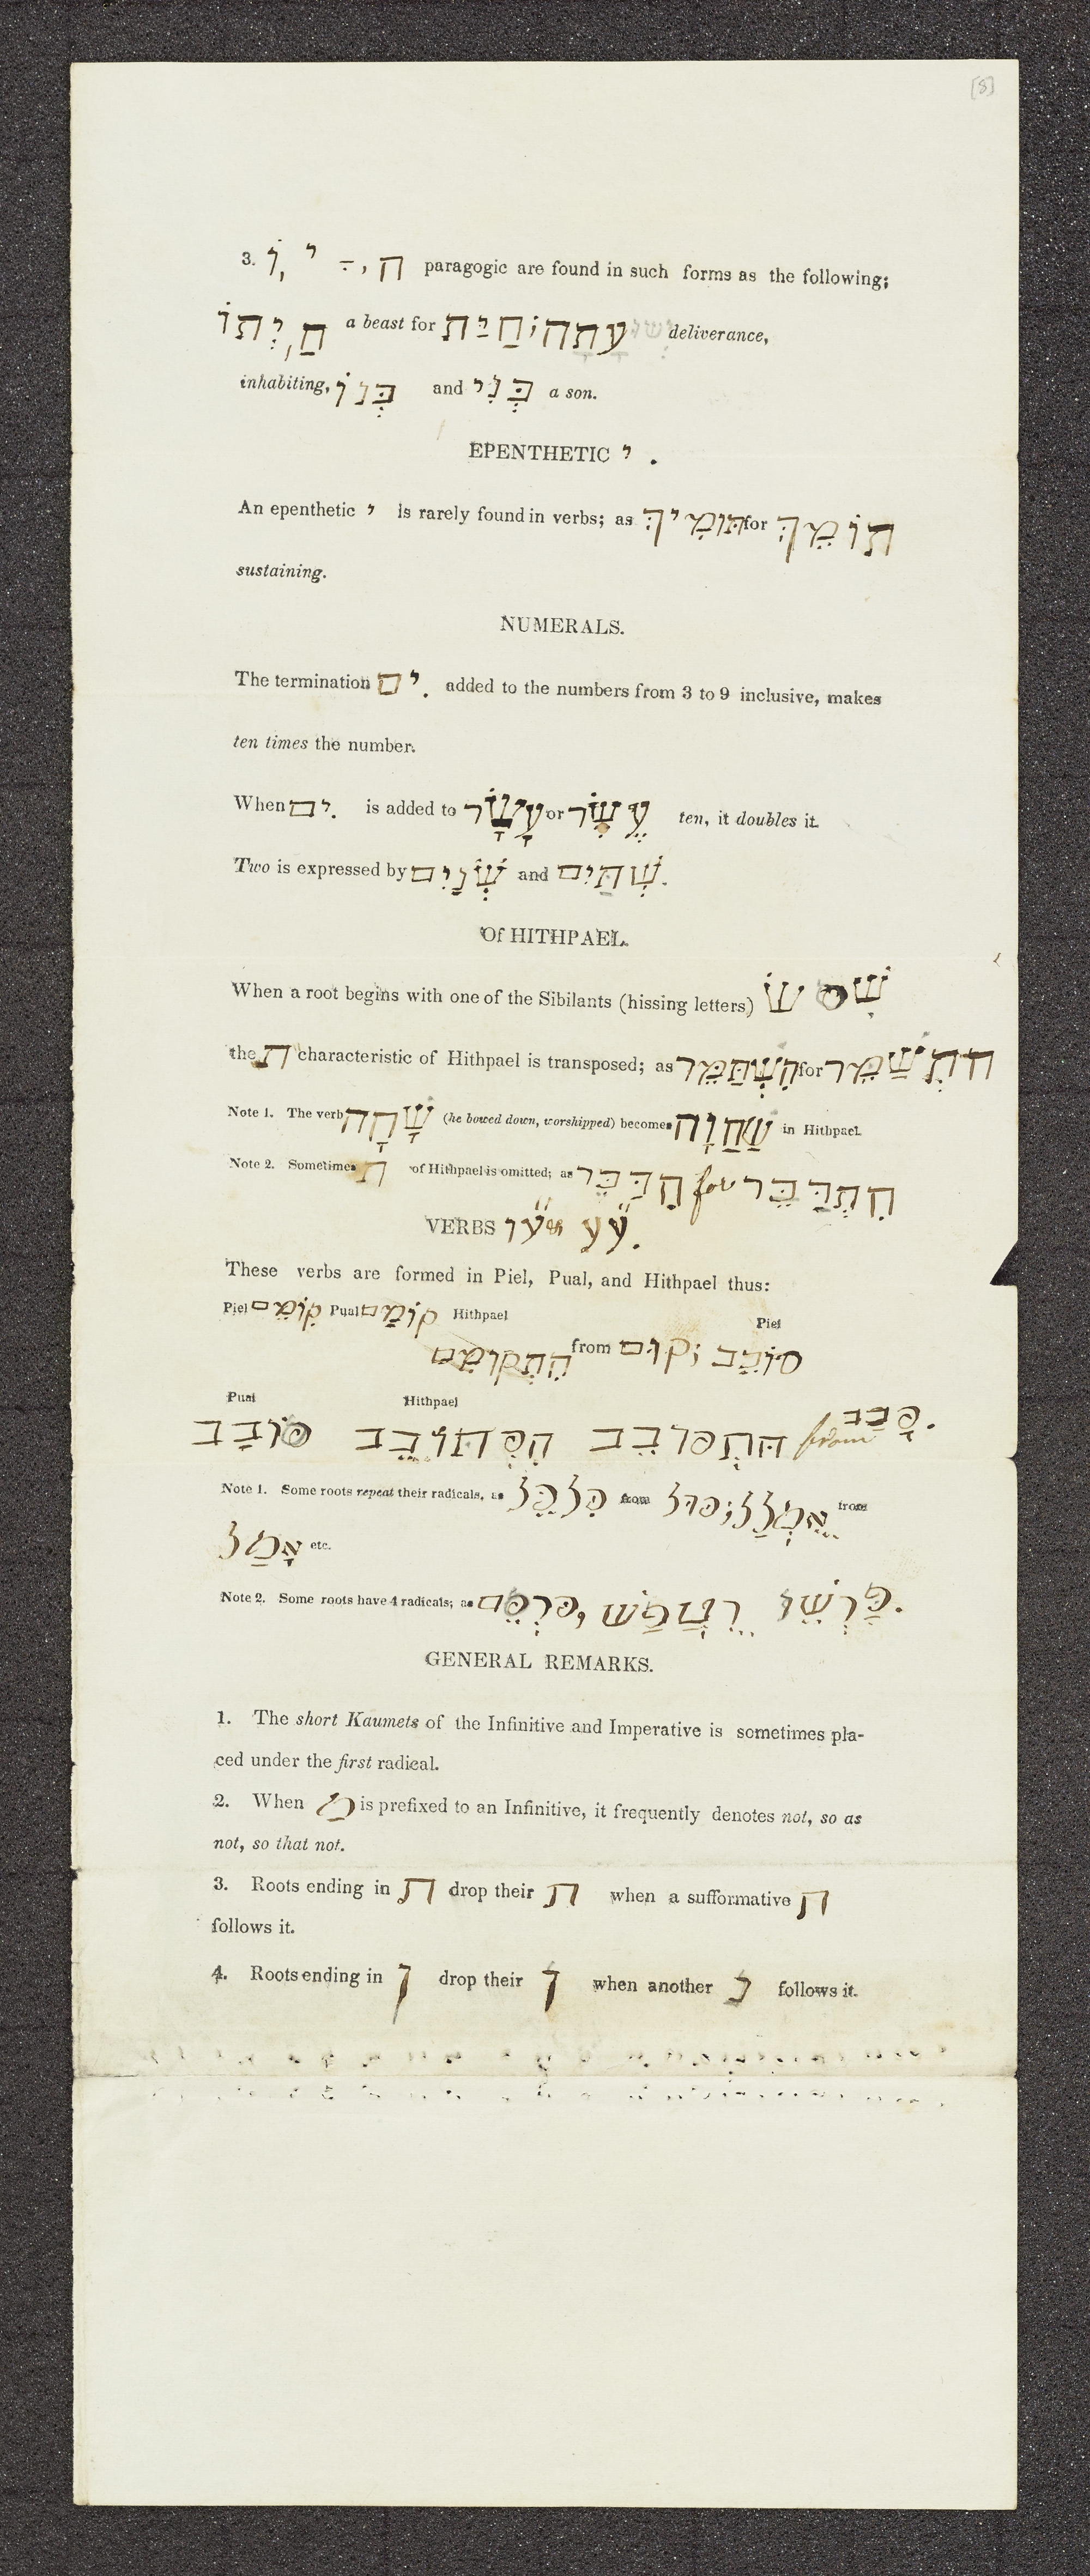 [8]
3. וֹ, י ־, ה paragogic are found in such forms as the following;
חַיְתוֹ a beast for חַיַּת; יְשׁוּעָתָה deliverance,
inhabiting, בְּנוֹ and בְּנִי a son.
EPENTHETIC י .
An epenthetic י is rarely found in verbs; as תּוֹמִיךְ for תוֹמֵךְ
sustaining.
NUMERALS.
The termination ִים added to the numbers from 3 to 9 inclusive, makes
ten times the number.
When ִים is added to עָשָׂר or עֶשֶׂר ten, it doubles it.
Two is expressed by שְׁנָיִם and שְׁתַּיִם.
Of HITHPAEL.
When a root begins with one of the Sibilants (hissing letters) שׁ ס שׂ
the ת characteristic of Hithpael is transposed; as הִשְׁתַּמֵּר for התְשַׁמֵּר
Note 1. The verb שָׁחָה (he bowed down, worshipped) becomes שַׁחֲוָה in Hithpael.
Note 2. Sometimes ת of Hithpael is omitted; as הִדַּבֵּר for הִתְדַּבֵּר
VERBS עו & עע.
These verbs are formed in Piel, Pual, and Hithpael thus:
Piel קוֹמֵם Pual קוֹמַם Hithpael
הִתְקוֹמֵם from קוּם; Piel סוֹבֵב
Pual Hithpael
סוֹבַב הִסְתּוֹבֵב הִתְסוֹבֵב from סָבַב.
Note 1. Some roots repeat their radicals, as כִּלְכֵּל from כּוּל; אֻמְלַל from
אָמַל etc.
Note 2. Some roots have 4 radicals; as
GENERAL REMARKS.
1. The short Kaumets of the Infinitive and Imperative is sometimes pla-
ced under the first radical.
2. When מ is prefixed to an Infinitive, it frequently denotes not, so as
not, so that not.
3. Roots ending in ת drop their ת when a sufformative ת
follows it.
4. Roots ending in ן drop their ן when another נ follows it.